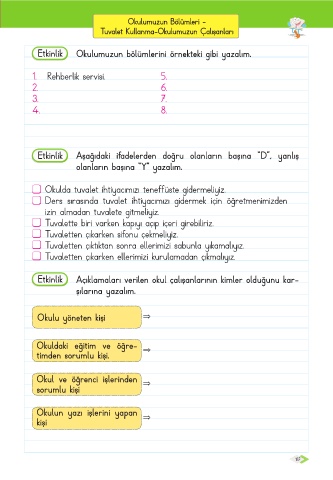 Okulumuzun Bölümleri -
Tuvalet Kullanma-Okulumuzun Çalışanları
Etkinlik Okulumuzun bölümlerini örnekteki gibi yazalım.
1. Rehberlik servisi. 5.
2. 6.
3. 7.
4. 8.
Etkinlik Aşağıdaki ifadelerden doğru olanların başına "D", yanlış
olanların başına "Y" yazalım.
Okulda tuvalet ihtiyacımızı teneffüste gidermeliyiz.
Ders sırasında tuvalet ihtiyacımızı gidermek için öğretmenimizden
izin almadan tuvalete gitmeliyiz.
Tuvalette biri varken kapıyı açıp içeri girebiliriz.
Tuvaletten çıkarken sifonu çekmeliyiz.
Tuvaletten çıktıktan sonra ellerimizi sabunla yıkamalıyız.
Tuvaletten çıkarken ellerimizi kurulamadan çıkmalıyız.
Etkinlik Açıklamaları verilen okul çalışanlarının kimler olduğunu kar-
şılarına yazalım.
Okulu yöneten kişi ⇒
Okuldaki eğitim ve öğre-
timden sorumlu kişi. ⇒
Okul ve öğrenci işlerinden
sorumlu kişi ⇒
Okulun yazı işlerini yapan
kişi ⇒